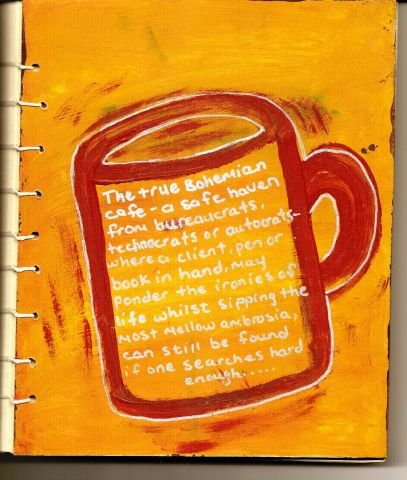 The true Bohemian
cafe - a safe haven
from bureaucrats,
technocrats or autocrats-
where a client, pen or
book in hand, may
ponder the ironies of
life whilst sipping the
most mellow ambrosia,
can still be found
if one searches hard
enough.....